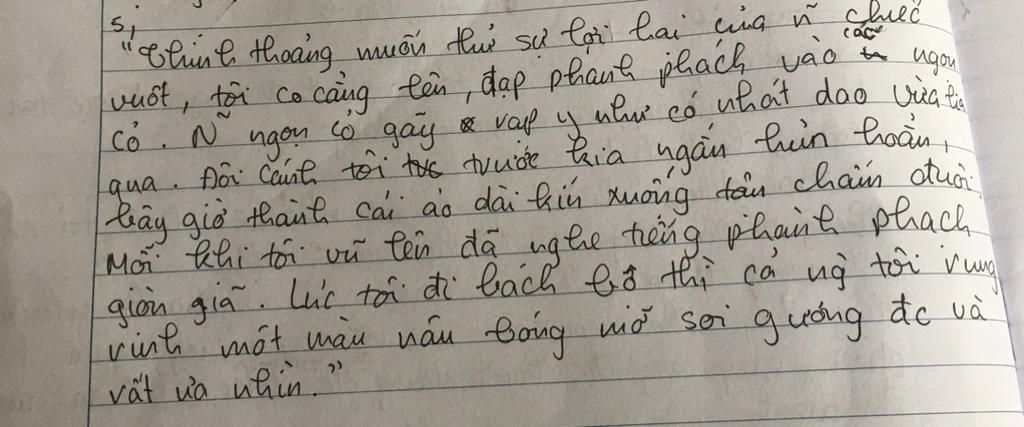 5,
"thỉnh thoảng muốn thử sự lợi hại của n~ chiếc
vuốt, tôi co cẳng lên, đạp phanh phách vào các ngọn
cỏ. N~ ngọn cỏ gãy rạp y như có nhát dao vừa lia
qua. Đôi cánh tôi trước kia ngắn hủn hoẳn,
bây giờ thành cái áo dài kín xuống tận chấm đuôi
Mỗi khi tôi vũ lên đã nghe tiếng phành phạch
giòn giã. Lúc tôi đi bách bộ thì cả ng` tôi rung
rinh một màu nâu bóng mỡ soi gương đc và
rất ưa nhìn."